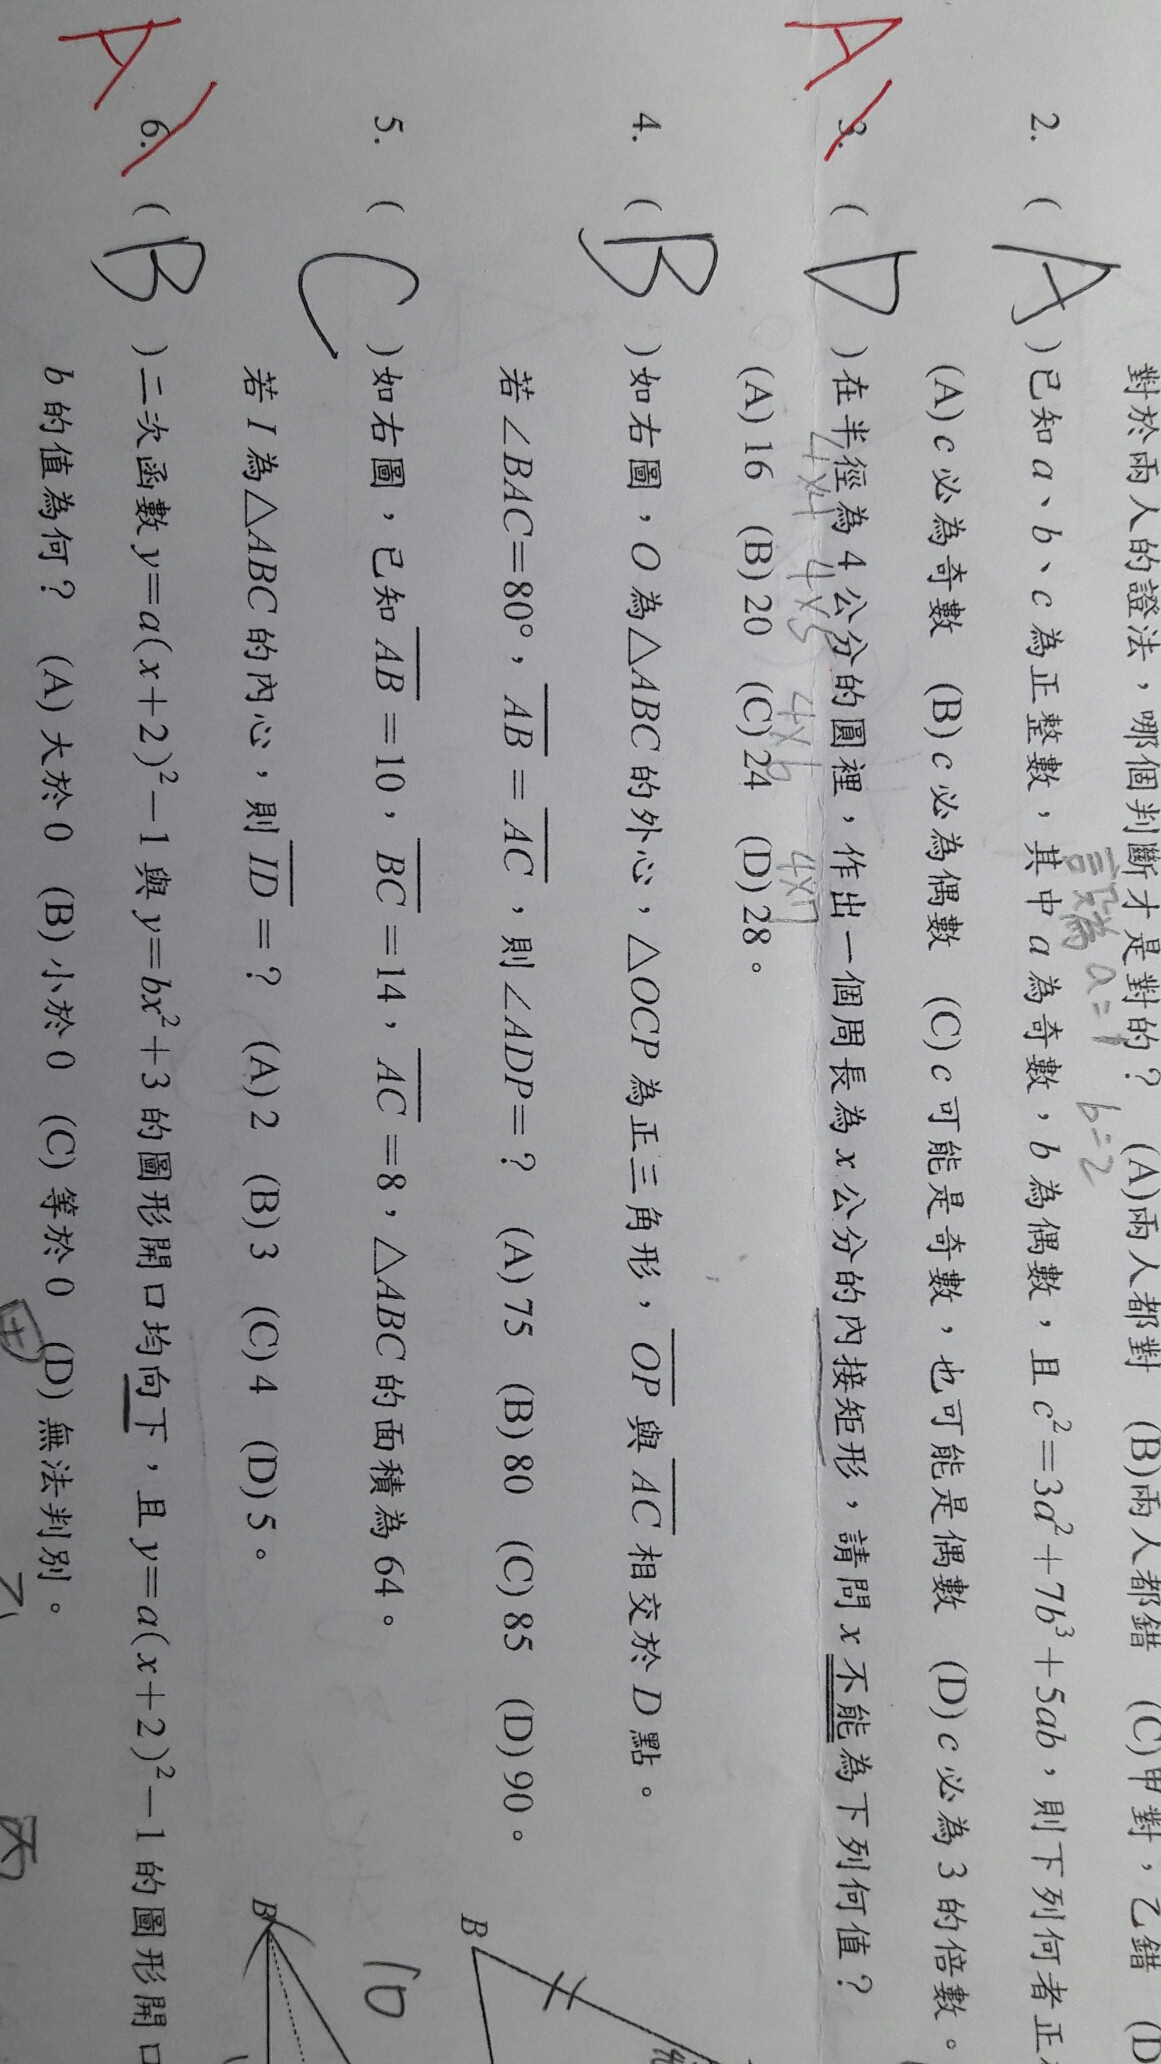 對於兩人的證法，哪個判斷才是對的？ (A)兩人都對 (B)兩人都錯 (C)甲對，乙錯 (D
a=1 b=2
2. ( A )已知 a、b、c 為正整數，其中 a 為奇數，b 為偶數，且 c²=3a²+7b³+5ab，則下列何者正
(A) c 必為奇數 (B) c 必為偶數 (C) c 可能是奇數，也可能是偶數 (D) c 必為 3 的倍數。
A
3. ( D )在半徑為 4 公分的圓裡，作出一個周長為 x 公分的內接矩形，請問 x 不能為下列何值？
4×4 4×5 4×6 4×7
(A) 16 (B) 20 (C) 24 (D) 28。
4. ( B )如右圖，O 為△ABC 的外心，△OCP 為正三角形，OP 與 AC 相交於 D 點。
若∠BAC=80°，AB=AC，則∠ADP=？ (A) 75 (B) 80 (C) 85 (D) 90。
B
5. ( C )如右圖，已知 AB=10，BC=14，AC=8，△ABC 的面積為 64。
10
若 I 為△ABC 的內心，則 ID=？ (A) 2 (B) 3 (C) 4 (D) 5。
B
A
6. ( B )二次函數 y=a(x+2)²−1 與 y=bx²+3 的圖形開口均向下，且 y=a(x+2)²−1 的圖形開口
b 的值為何？ (A) 大於 0 (B) 小於 0 (C) 等於 0 (D) 無法判別。